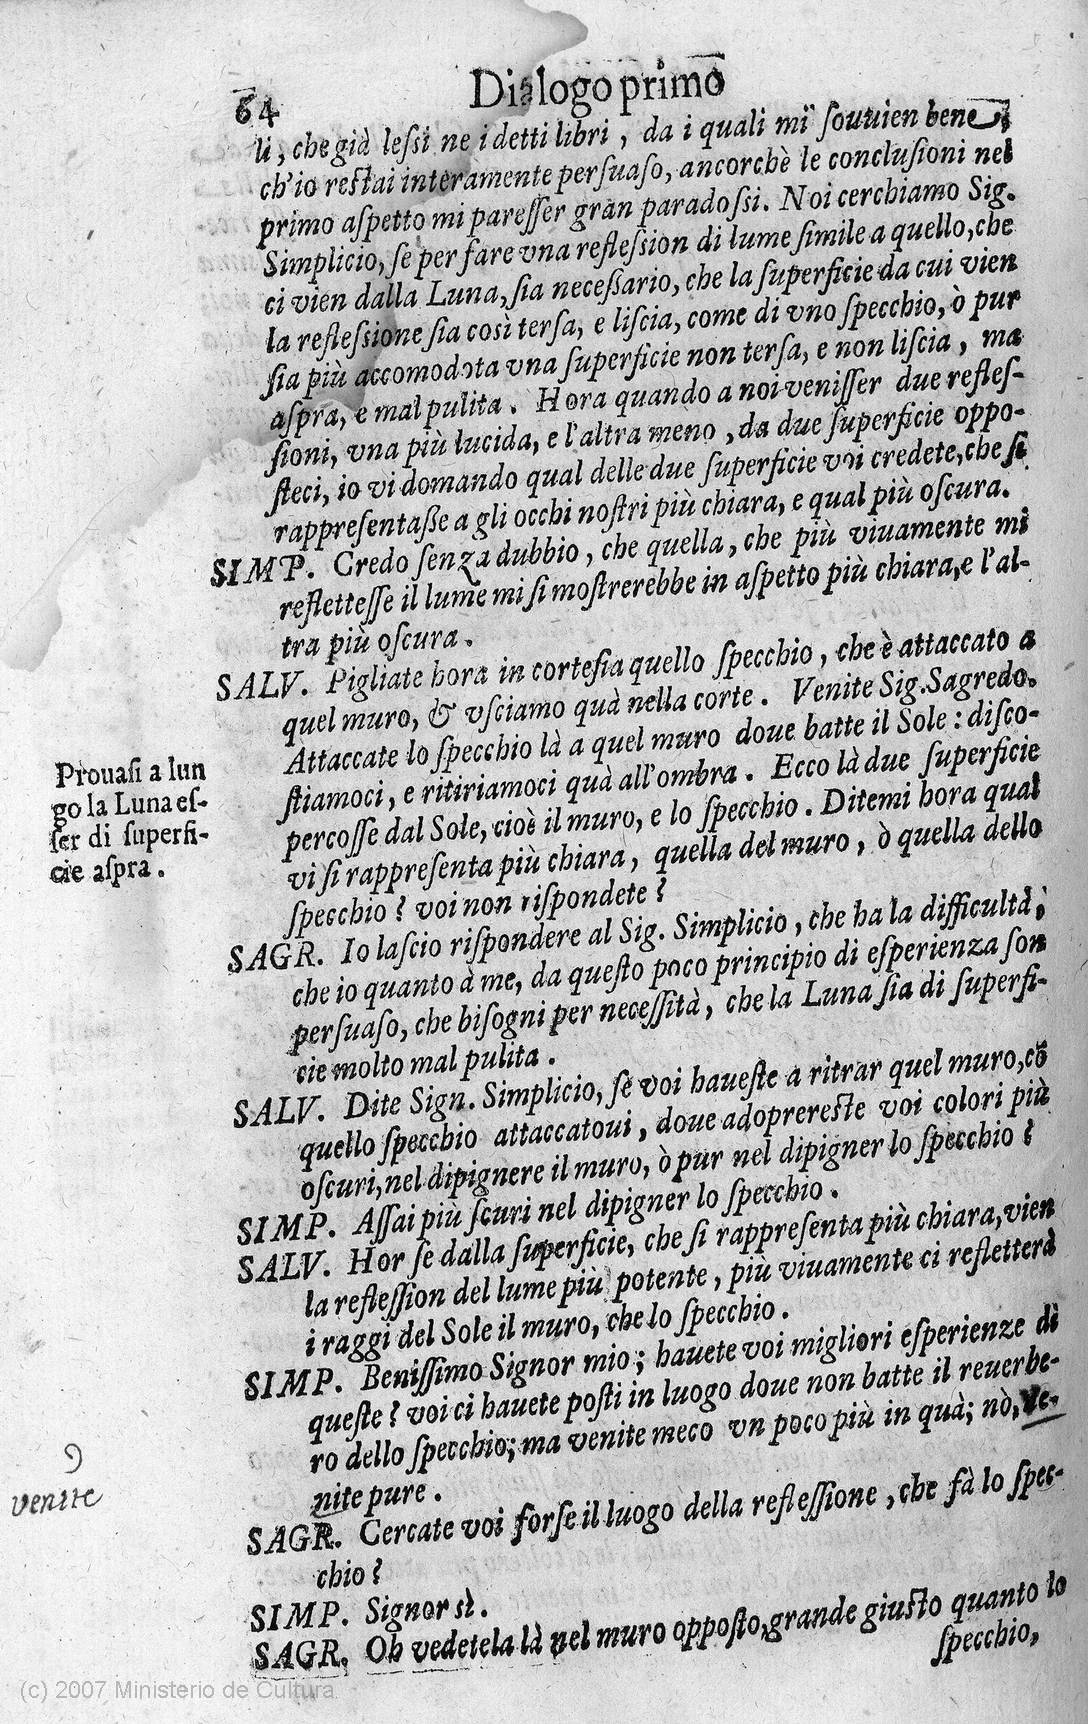 64
Dialogo primo
li, che già lessi ne i detti libri, da i quali mi souuien bene,
ch'io restai interamente persuaso, ancorchè le conclusioni nel
primo aspetto mi paresser gran paradossi. Noi cerchiamo Sig.
Simplicio, se per fare vna reflession di lume simile a quello, che
ci vien dalla Luna, sia necessario, che la superficie da cui vien
la reflessione sia così tersa, e liscia, come di vno specchio, ò pur
sia più accomodata vna superficie non tersa, e non liscia, ma
aspra, e mal pulita. Hora quando a noi venisser due refles-
sioni, vna più lucida, e l'altra meno, da due superficie oppo-
steci, io vi domando qual delle due superficie voi credete, che si
rappresentasse a gli occhi nostri più chiara, e qual più oscura.
SIMP. Credo senza dubbio, che quella, che più viuamente mi
reflettesse il lume mi si mostrerebbe in aspetto più chiara, e l'al-
tra più oscura.
SALV. Pigliate hora in cortesia quello specchio, che è attaccato a
quel muro, & vsciamo quà nella corte. Venite Sig. Sagredo.
Attaccate lo specchio là a quel muro doue batte il Sole: disco-
stiamoci, e ritiriamoci quà all'ombra. Ecco là due superficie
percosse dal Sole, cioè il muro, e lo specchio. Ditemi hora qual
vi si rappresenta più chiara, quella del muro, ò quella dello
specchio? voi non rispondete?
Prouasi a lun
go la Luna es-
ser di superfi-
cie aspra.
SAGR. Io lascio rispondere al Sig. Simplicio, che ha la difficultà;
che io quanto à me, da questo poco principio di esperienza son
persuaso, che bisogni per necessità, che la Luna sia di superfi-
cie molto mal pulita.
SALV. Dite Sign. Simplicio, se voi haueste a ritrar quel muro, cō
quello specchio attaccatoui, doue adoprereste voi colori più
oscuri, nel dipignere il muro, ò pur nel dipigner lo specchio?
SIMP. Assai più scuri nel dipigner lo specchio.
SALV. Hor se dalla superficie, che si rappresenta più chiara, vien
la reflession del lume più potente, più viuamente ci refletterà
i raggi del Sole il muro, che lo specchio.
SIMP. Benissimo Signor mio; hauete voi migliori esperienze di
queste? voi ci hauete posti in luogo doue non batte il reuerbe-
ro dello specchio; ma venite meco vn poco più in quà; nò, ve-
nite pure.
venite
SAGR. Cercate voi forse il luogo della reflessione, che fà lo spec-
chio?
SIMP. Signor sì.
SAGR. Oh vedetela là nel muro opposto, grande giusto quanto lo
specchio,
(c) 2007 Ministerio de Cultura